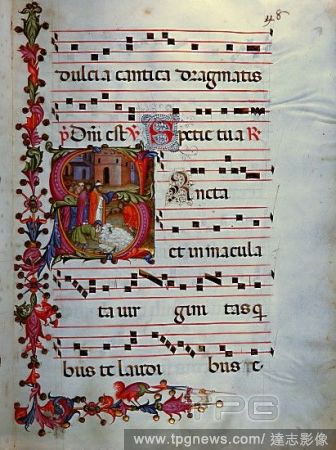 48
dulcia cantica dragmatis
p̄ Dm̄ est ℣ Specie tua R
Sancta
et inmacula
ta uir gini tas q̄
bus te laudi bus te
TPG
www.tpgnews.com/ 達志影像